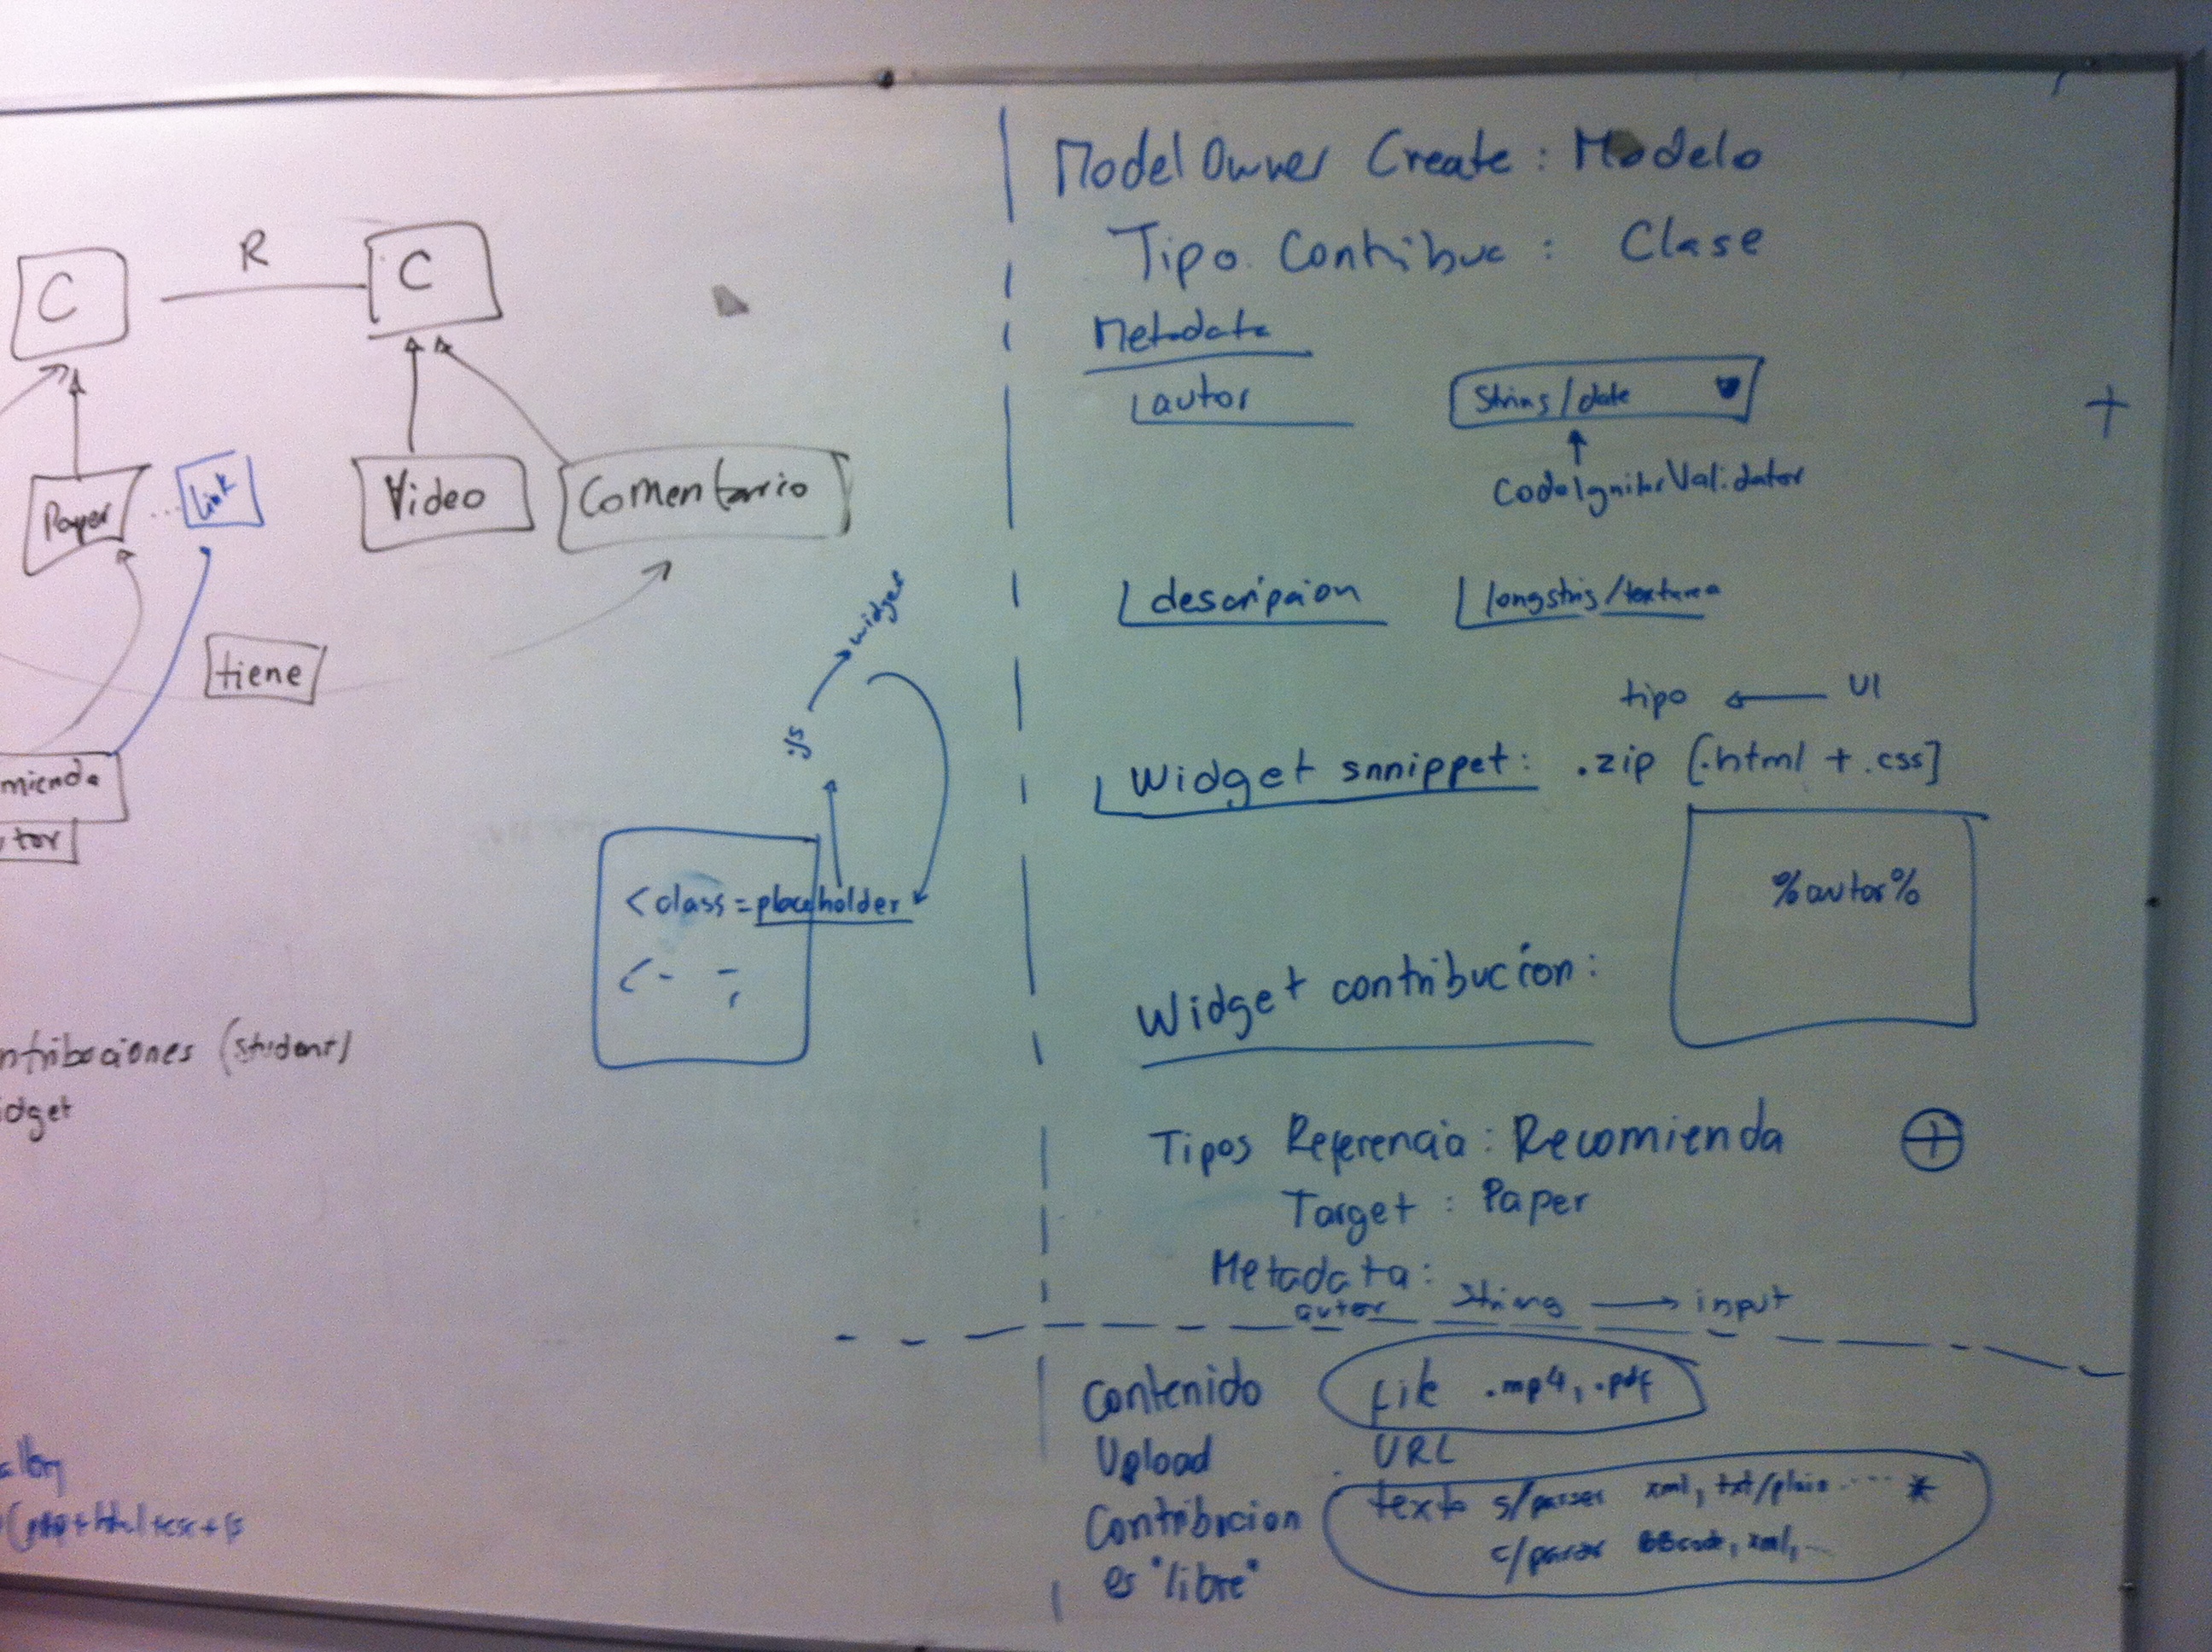 C
R
C
Paper
Link
Video
Comentario
tiene
mienda
tor
widget
js
<class=placeholder
ntribuciones (student)
idget
Model Owner Create : Modelo
Tipo Contribuc : Clase
Metadata
autor
String/date
CodeIgniterValidator
+
descripcion
longstring/textarea
tipo ← UI
Widget snnippet: .zip [.html + .css]
%autor%
Widget contribución:
Tipos Referencia : Recomienda
Target : Paper
Metadata:
autor String → input
Contenido file .mp4, .pdf
Upload URL
Contribucion texto s/parser xml, txt/plain ···· *
c/parser BBcode, xml, ...
es "libre"